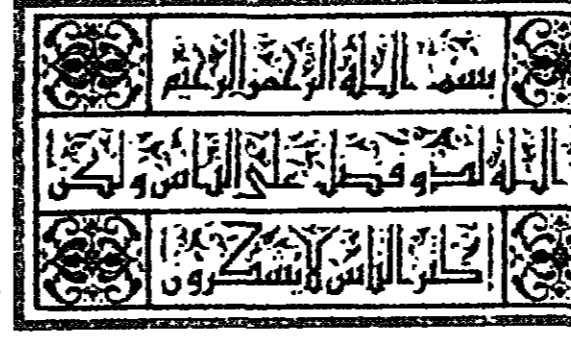 بسم الله الرحمن الرحيم
الله لذو فضل على الناس ولكن
اكثر الناس لا يشكرون